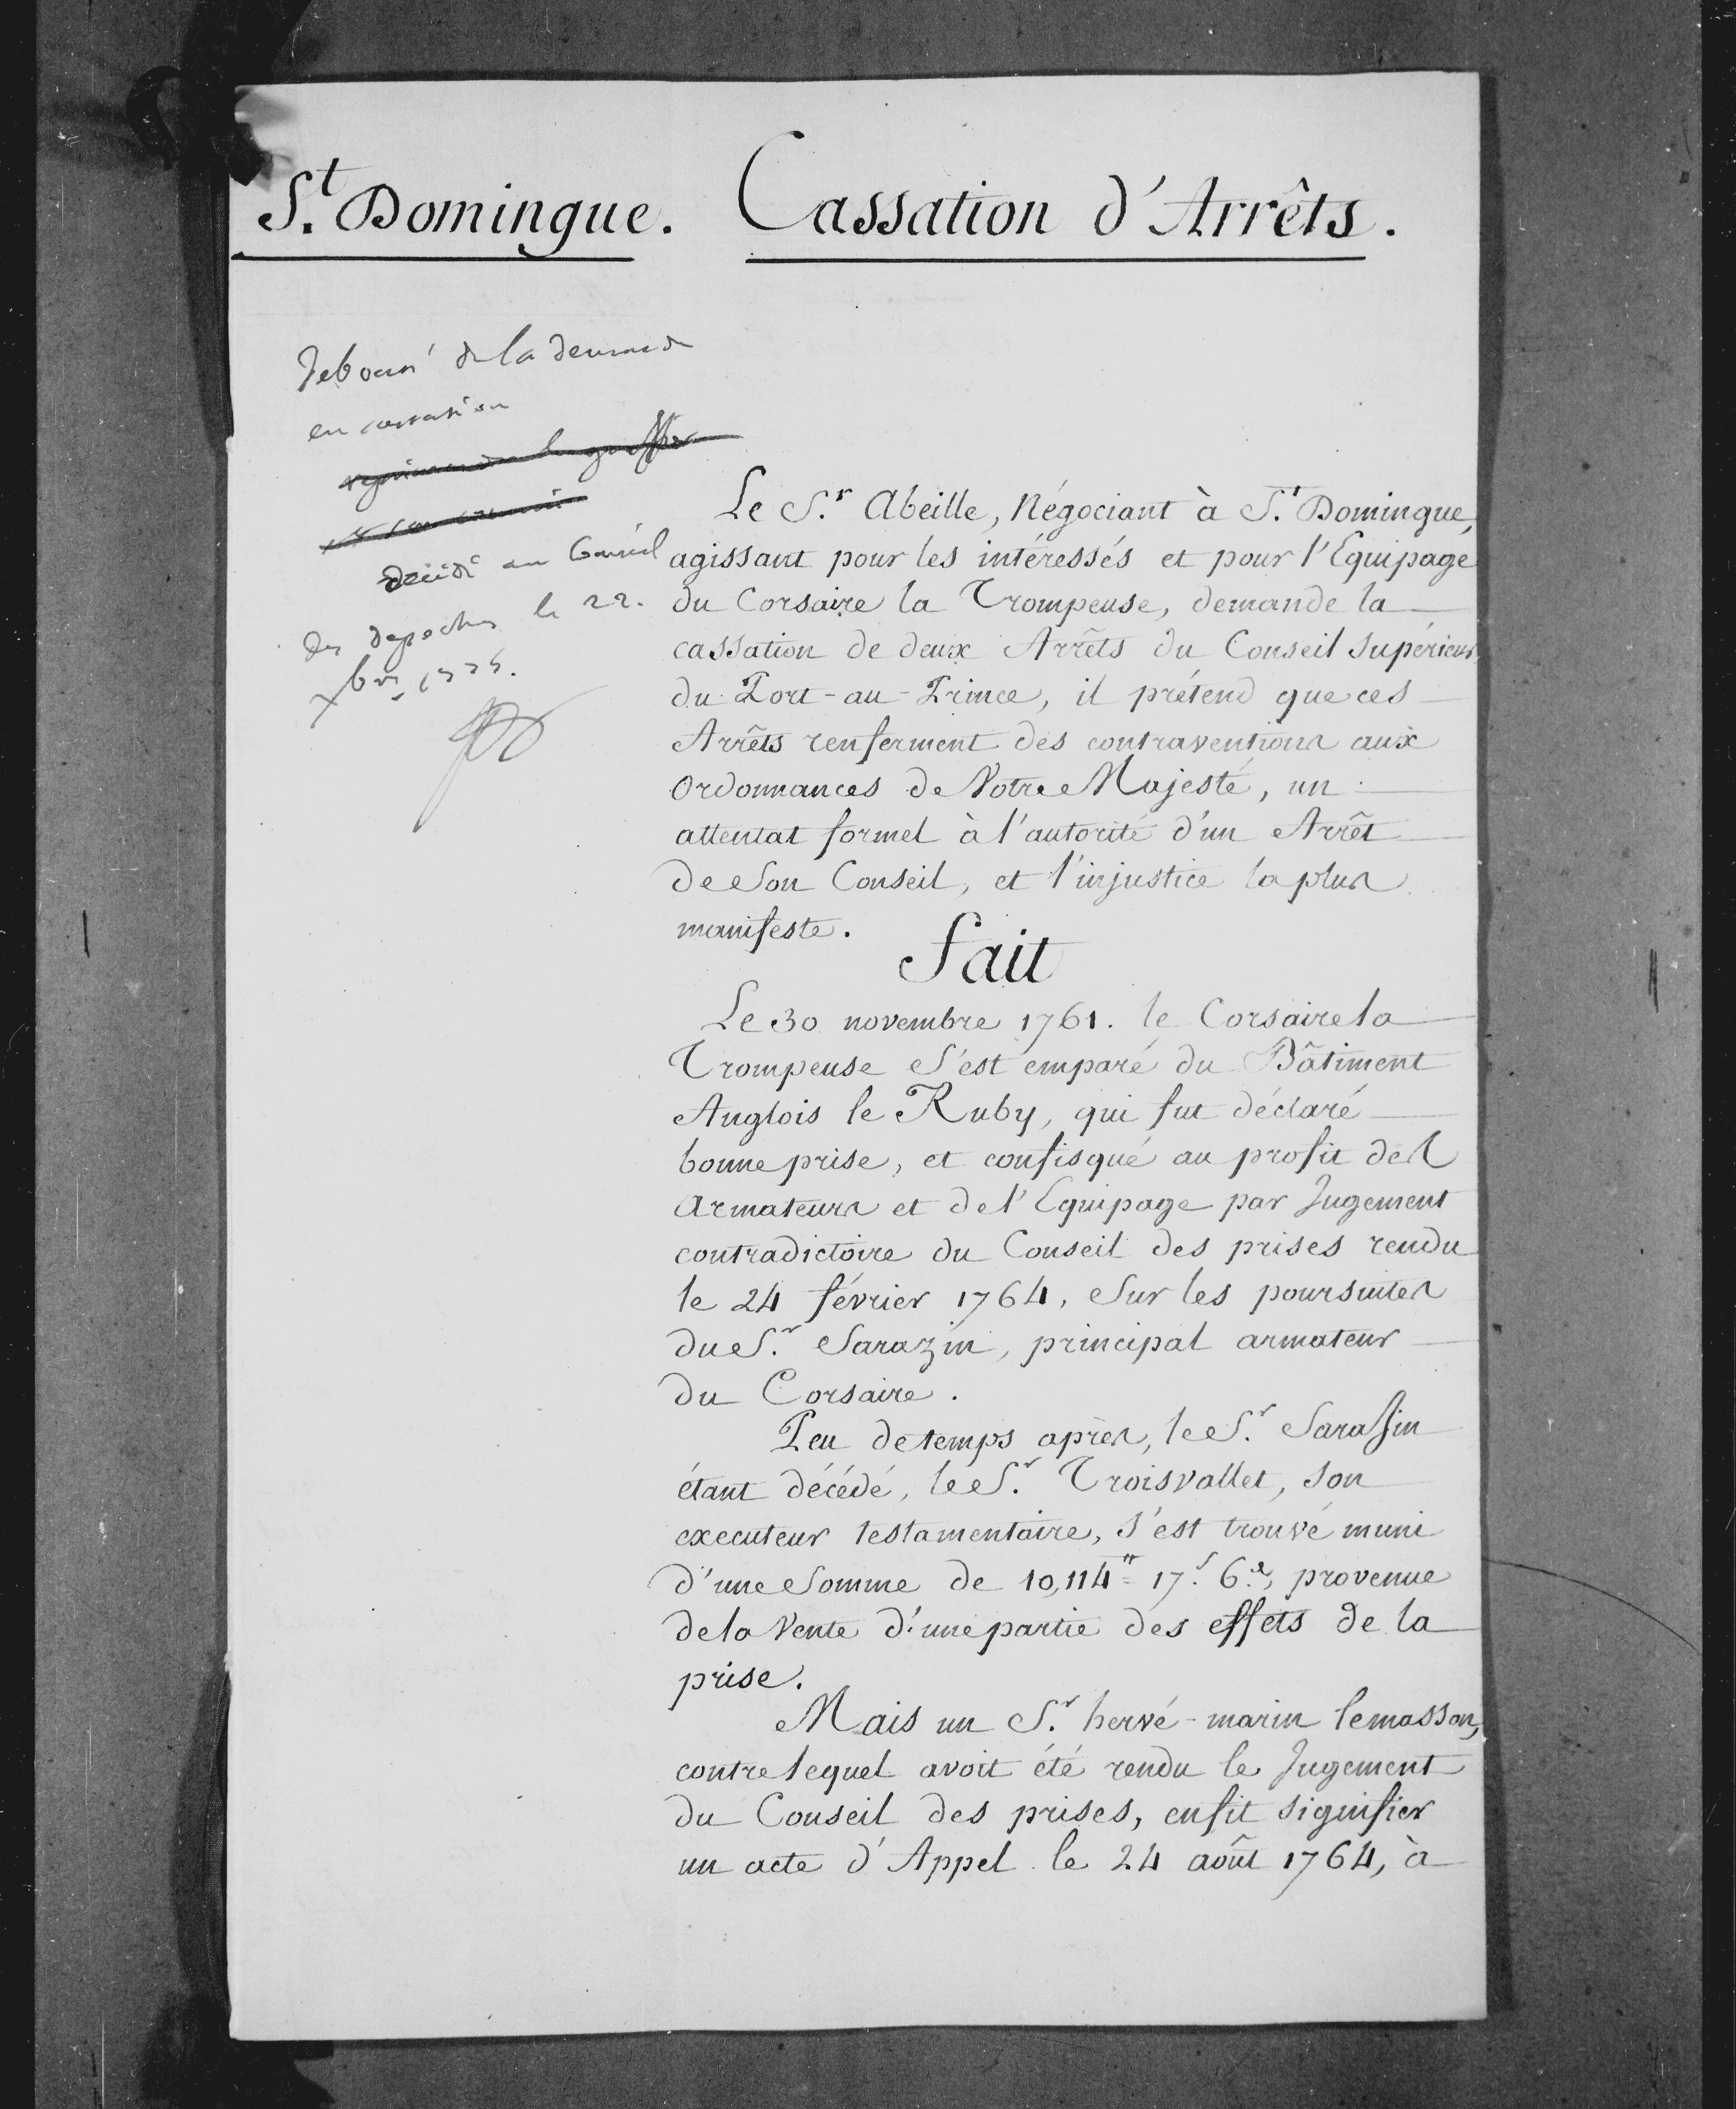 S.t Domingue. Cassation d'Arrêts.
de la demande
en cassation
décidé au Conseil
des depeches le 22.
xbre
Le S.r Abeille, Négociant à S.t Domingue,
agissant pour les intéressés et pour l'Equipage
du Corsaire la Trompeuse, demande la
cassation de deux Arrêts du Conseil Supérieur
du Port-au-Prince, il prétend que ces
Arrêts renferment des contraventions aux
Ordonnances de Votre Majesté, un
attentat formel à l'autorité d'un Arrêt
de Son Conseil, et l'injustice la plus
manifeste.
Fait
Le 30 novembre 1761. le Corsaire la
Trompeuse S'est emparé du Bâtiment
Anglois le Ruby, qui fut déclaré
bonne prise, et confisqué au profit des
Armateurs et de l'Equipage par Jugement
contradictoire du Conseil des prises rendu
le 24 février 1764, Sur les poursuites
du S.r Sarazin, principal armateur
du Corsaire.
Peu de temps après, le S.r Sarassin
étant décédé, le S.r Troisvallet, son
executeur testamentaire, s'est trouvé muni
d'une Somme de 10,114.tt 17.s 6.d, provenue
de la Vente d'une partie des effets de la
prise.
Mais un S.r hervé-marin lemasson,
contre lequel avoit été rendu le Jugement
du Conseil des prises, en fit signifier
un acte d'Appel le 24 août 1764, à